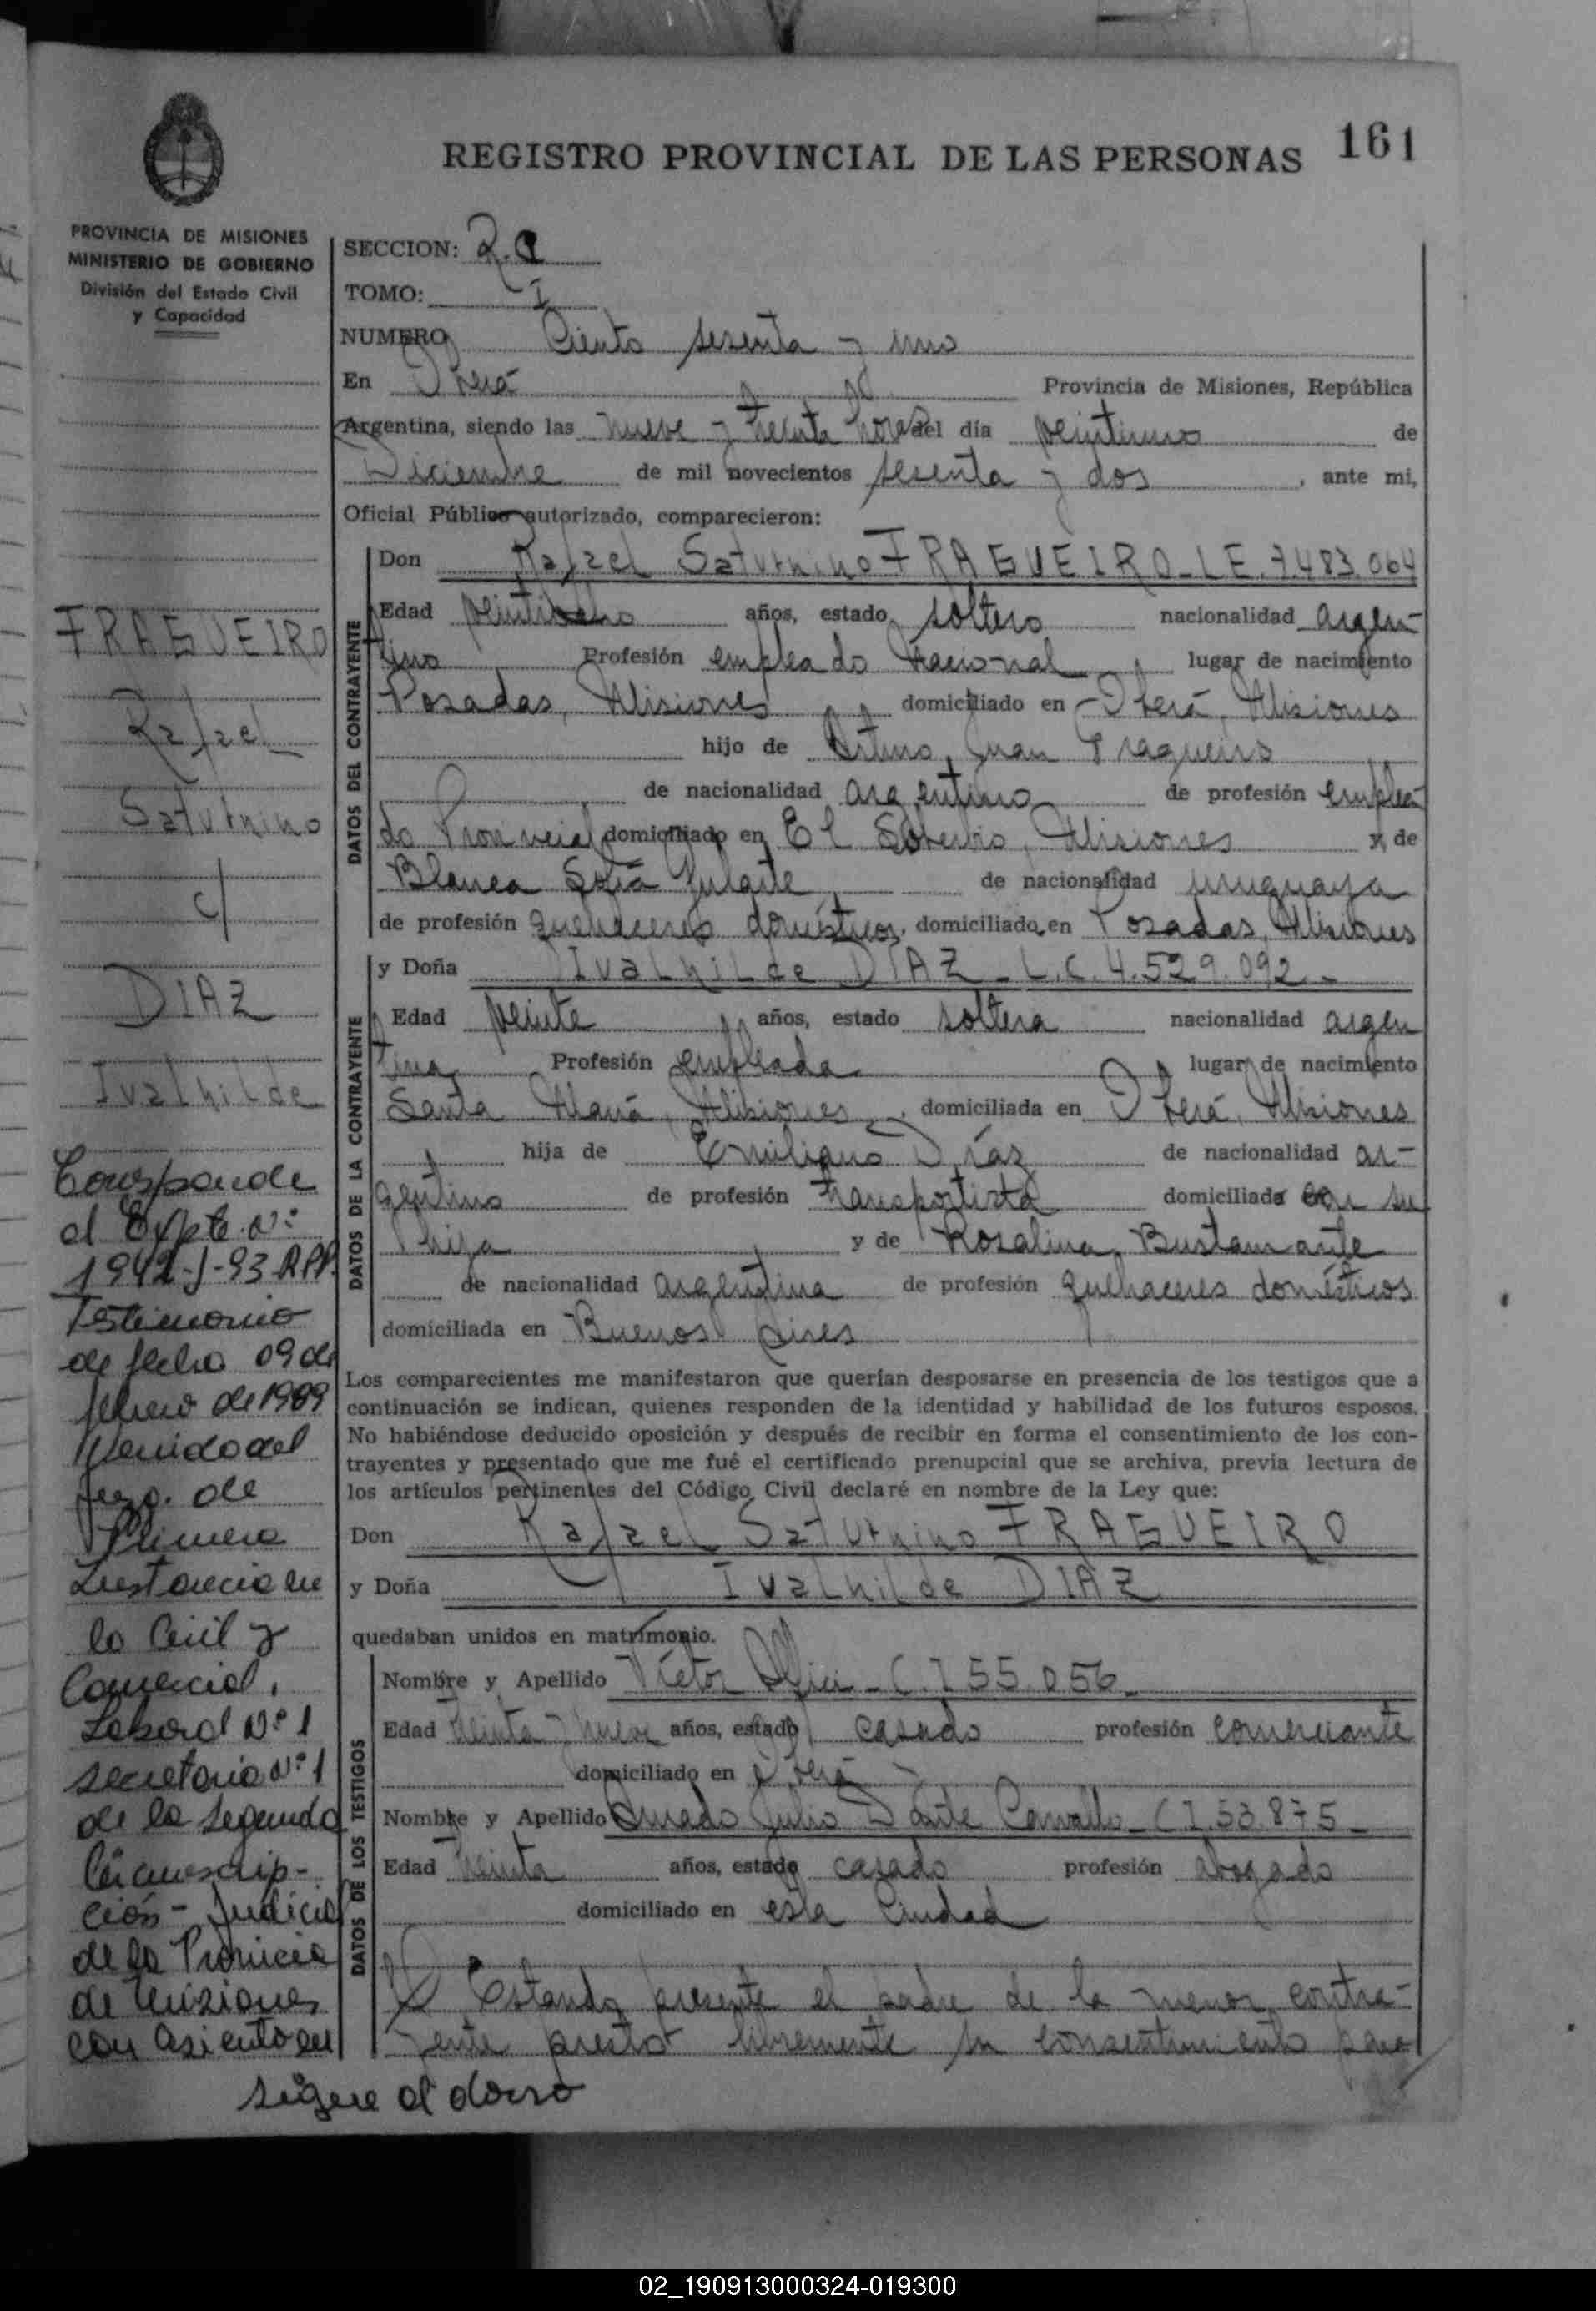 161
REGISTRO PROVINCIAL DE LAS PERSONAS
PROVINCIA DE MISIONES
MINISTERIO DE GOBIERNO
División del Estado Civil
y Capacidad
FRAGUEIRO
Rafael
Saturnino
c/
DIAZ
Ivalhilde
Corresponde
al Expte. Nº:
1942-J-93 RPP.
Testimonio
de fecha 09 de
febrero de 1989
Venido del
Juzg. de
Primera
Instancia en
lo Civil y
Comercial,
Laboral Nº 1
secretaria Nº 1
de la segunda
Circunscrip-
ción - Judicial
de la Provincia
de Misiones
con asiento en
sigue al dorso
SECCION: 2.a
TOMO: I
NUMERO Ciento sesenta y uno
En Oberá Provincia de Misiones, República
Argentina, siendo las nueve y treinta horas del día veintiuno de
Diciembre de mil novecientos sesenta y dos, ante mi,
Oficial Público autorizado, comparecieron:
DATOS DEL CONTRAYENTE
Don Rafael Saturnino FRAGUEIRO - LE. 7.483.064
Edad años, estado soltero nacionalidad argen-
tino Profesión empleado Nacional, lugar de nacimiento
Posadas, Misiones domiciliado en Oberá, Misiones
hijo de Juan Fragueiro
de nacionalidad argentino de profesión emplea
do Provincial domiciliado en El Soberbio, Misiones y de
Blanca Sofía Zulaite de nacionalidad uruguaya
de profesión quehaceres domésticos, domiciliado en Posadas, Misiones
DATOS DE LA CONTRAYENTE
y Doña Ivalhilde DIAZ - L.C. 4.529.092 -
Edad veinte años, estado soltera nacionalidad argen
tina Profesión empleada lugar de nacimiento
Santa María, Misiones, domiciliada en Oberá, Misiones
hija de Emiliano Díaz de nacionalidad ar-
gentino de profesión transportista domiciliado con su
hija y de Rosalina Bustamante
de nacionalidad argentina de profesión quehaceres domésticos
domiciliada en Buenos Aires
Los comparecientes me manifestaron que querían desposarse en presencia de los testigos que a
continuación se indican, quienes responden de la identidad y habilidad de los futuros esposos.
No habiéndose deducido oposición y después de recibir en forma el consentimiento de los con-
trayentes y presentado que me fué el certificado prenupcial que se archiva, previa lectura de
los artículos pertinentes del Código Civil declaré en nombre de la Ley que:
Don Rafael Saturnino FRAGUEIRO
y Doña Ivalhilde DIAZ
quedaban unidos en matrimonio.
DATOS DE LOS TESTIGOS
Nombre y Apellido Víctor - C.I 55.056 -
Edad treinta y nueve años, estado casado profesión comerciante
domiciliado en Oberá
Nombre y Apellido Amado Julio Dante Carvallo - C.I. 53.875 -
Edad treinta años, estado casado profesión abogado
domiciliado en esta Ciudad
Estando presente el padre de la menor contra-
yente prestó libremente su consentimiento para
02_190913000324-019300